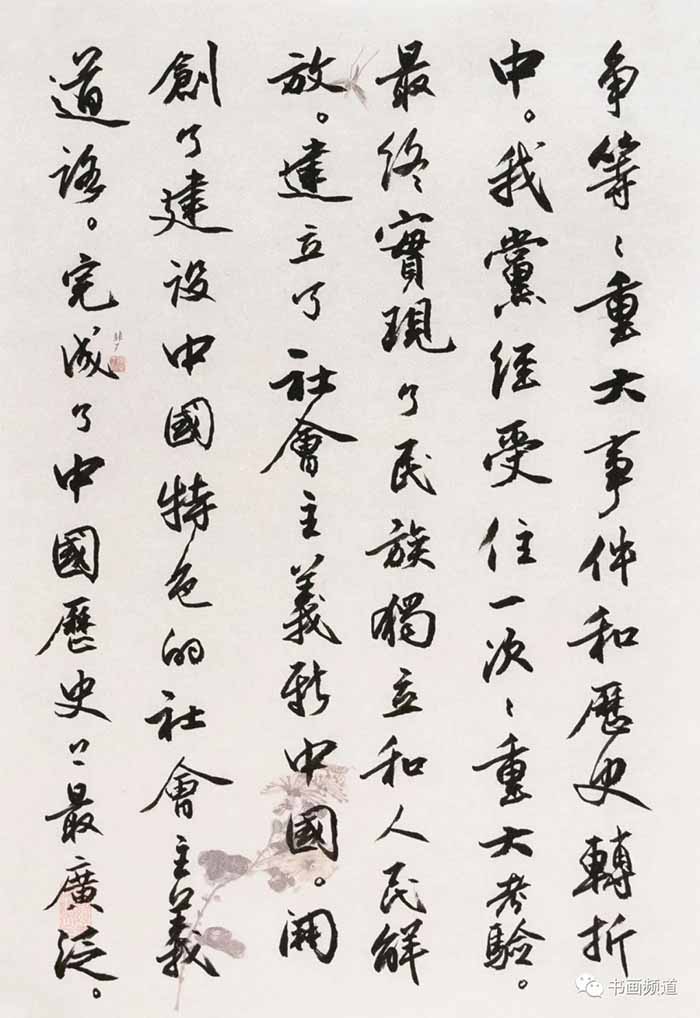 争等〻重大事件和歷史轉折
中。我黨經受住一次〻重大考驗。
最終實現了民族獨立和人民解
放。建立了社會主義新中國。開
創了建设中國特色的社會主義
道路。完成了中國歷史上最廣泛。
书画频道